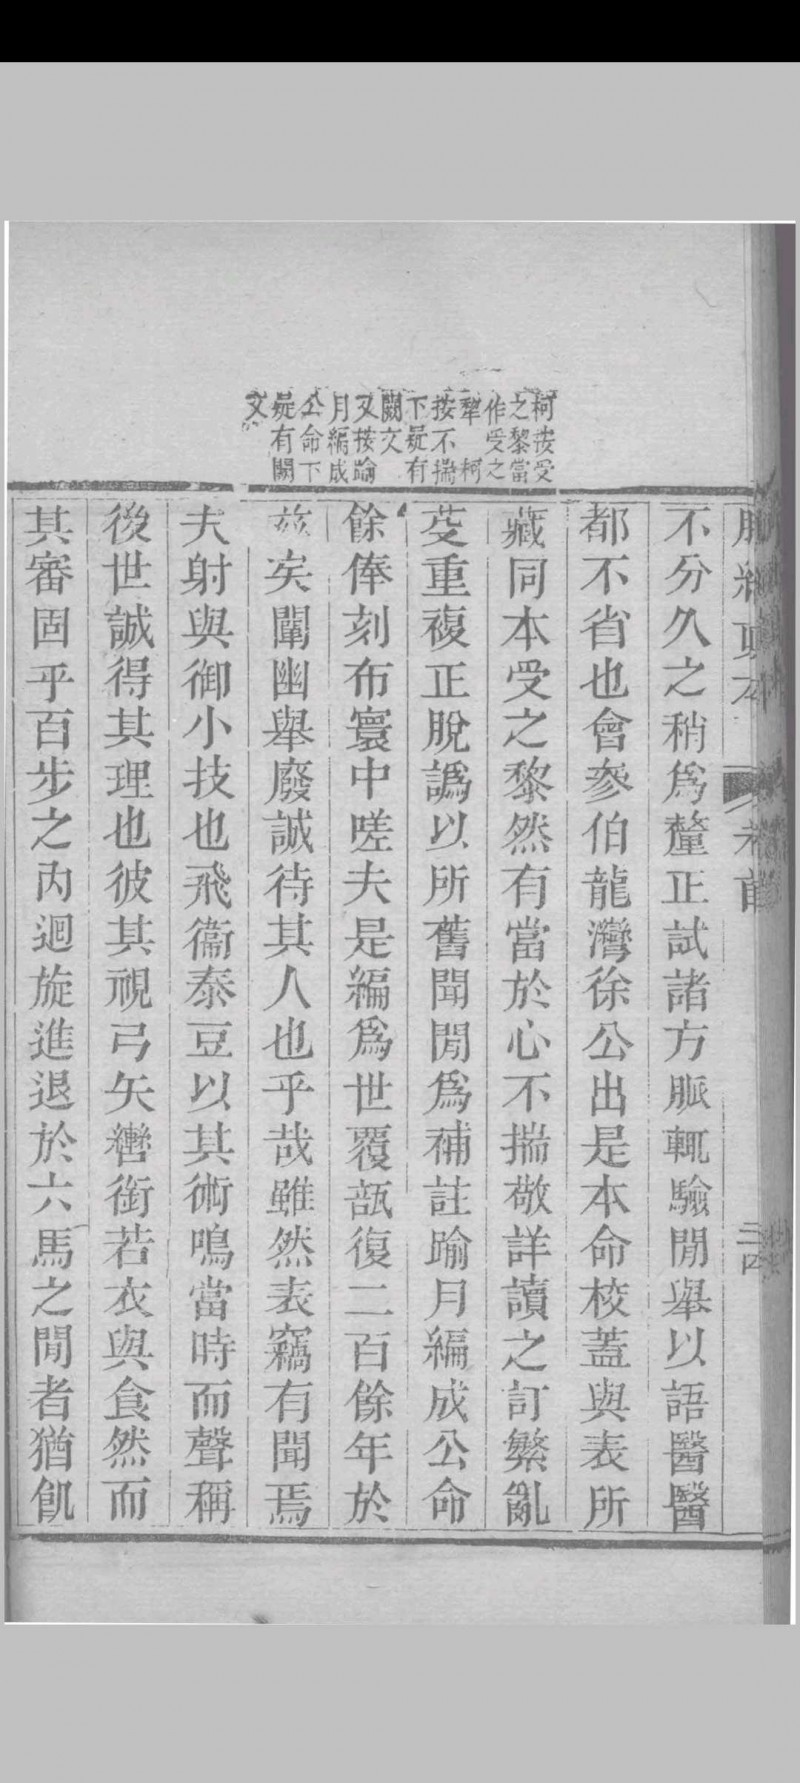 柯按受
之黎當
作受之
犂　柯
按不揣
下疑有
闕文
又按踰
月編成
公命下
疑有闕
文
不分久之稍爲釐正試諸方脈輒驗閒舉以語醫醫
都不省也會參伯龍灣徐公出是本命校蓋與表所
藏同本受之黎然有當於心不揣敬詳讀之訂繁亂
芟重複正脫譌以所舊聞閒爲補註踰月編成公命
餘俸刻布寰中嗟夫是編爲世覆瓿復二百餘年於
茲矣闡幽舉廢誠待其人也乎哉雖然表竊有聞焉
夫射與御小技也飛衞泰豆以其術鳴當時而聲稱
後世誠得其理也彼其視弓矢轡銜若衣與食然而
其審固乎百步之內迴旋進退於六馬之閒者猶飢